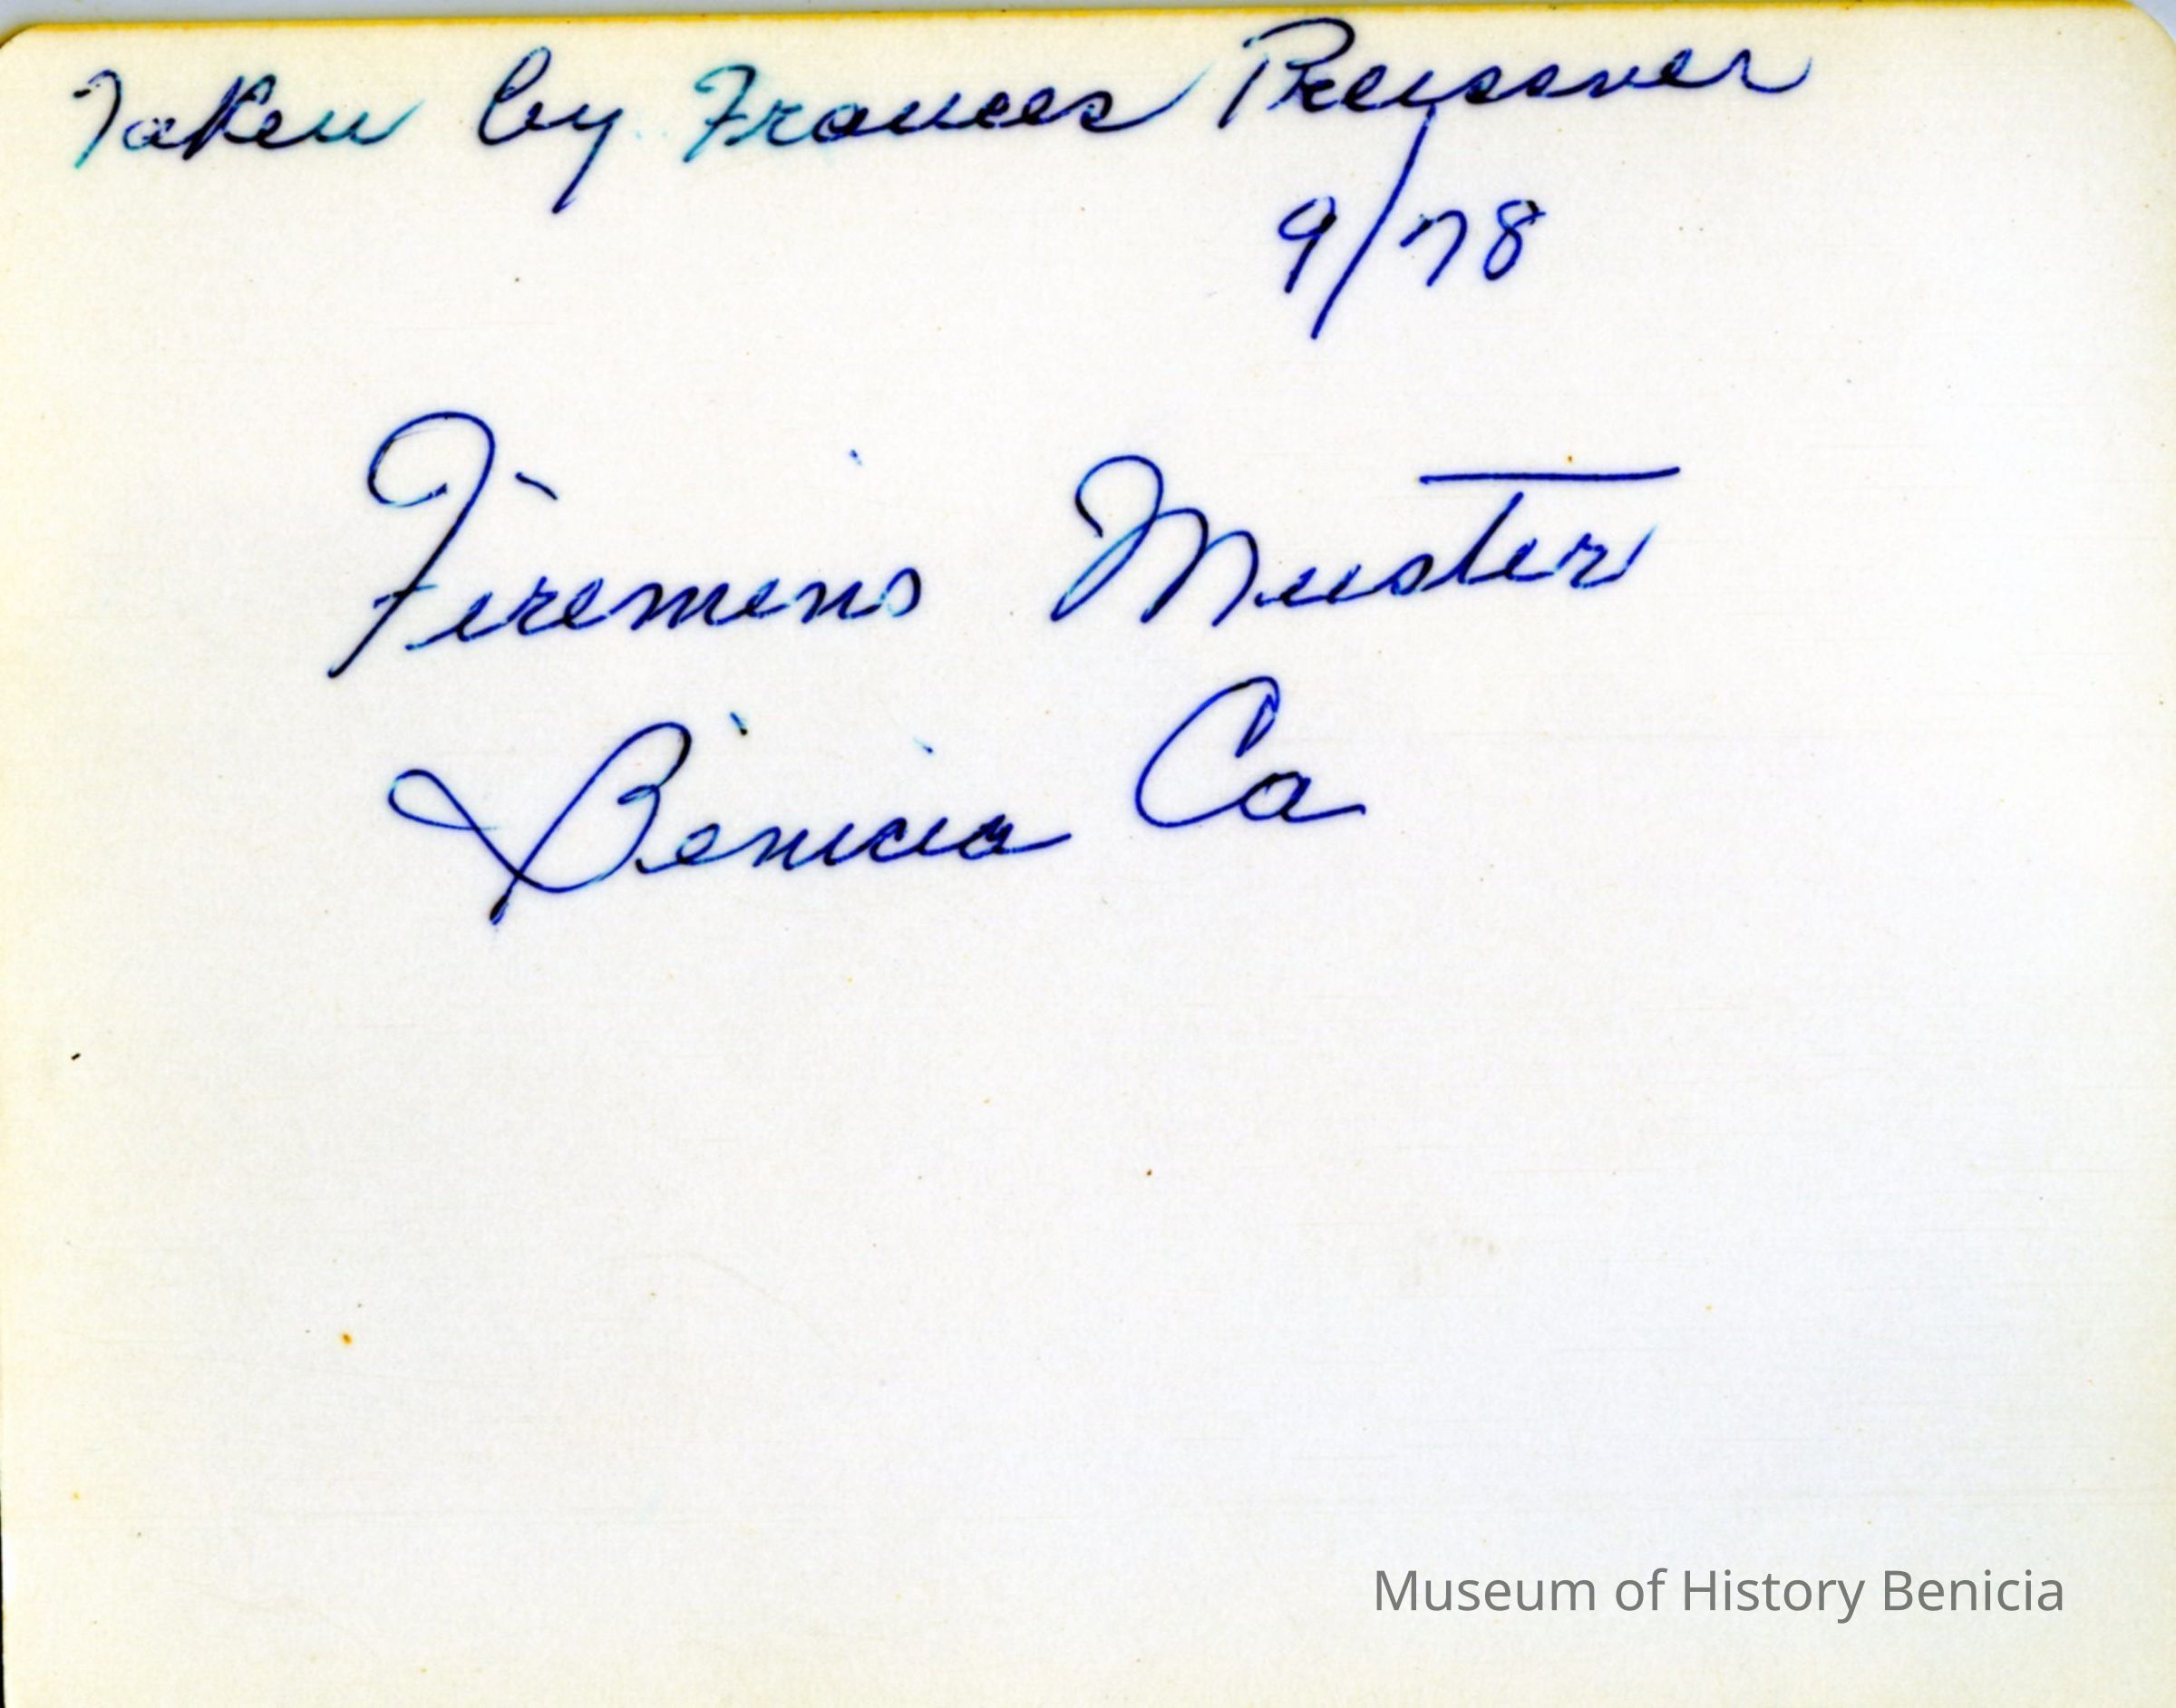 Taken by Frances Preissner
9/78
Firemens Muster
Benicia Ca
Museum of History Benicia